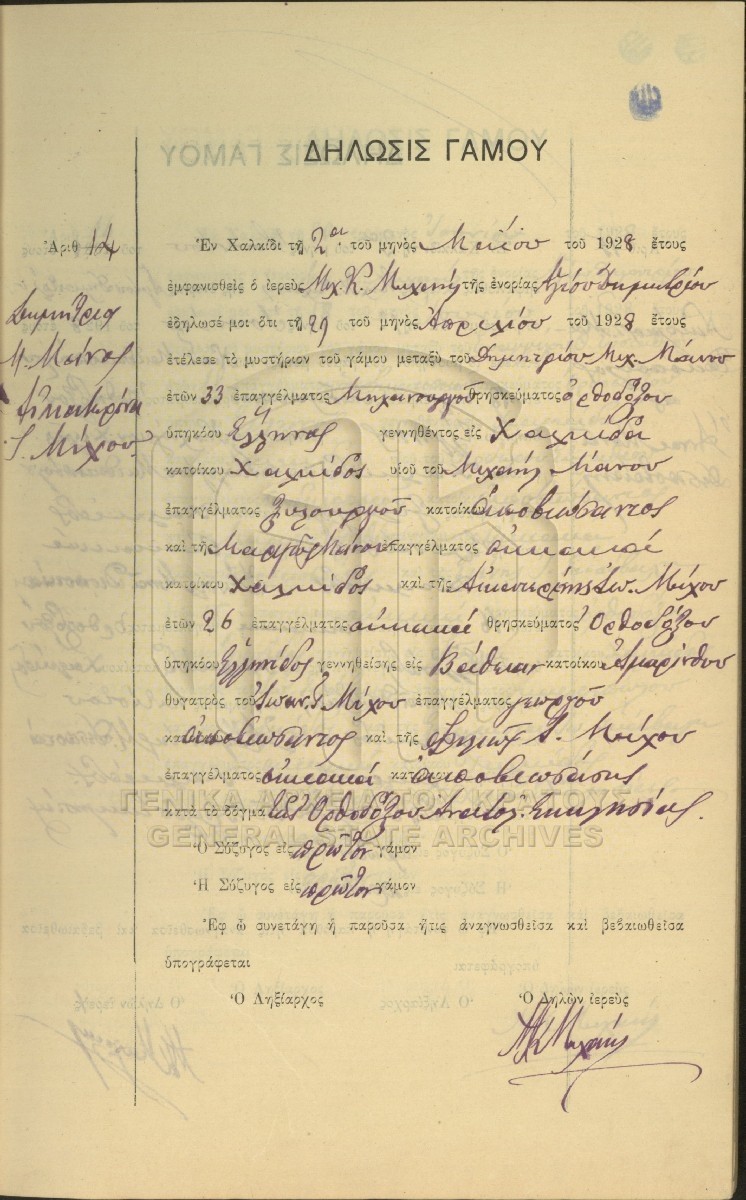 ΔΗΛΩΣΙΣ ΓΑΜΟΥ
Ἀριθ 14
Δημήτριος
Μ. Μάνος
Αἰκατερίνη
Ι. Μίχου
Ἐν Χαλκίδι τῇ 2α τοῦ μηνὸς Μαΐου τοῦ 1928 ἔτους
ἐμφανισθεὶς ὁ ἱερεὺς Μιχ. Κ. Μιχαὴλ τῆς ἐνορίας Ἁγίου Δημητρίου
ἐδήλωσέ μοι ὅτι τῇ 29 τοῦ μηνὸς Ἀπριλίου τοῦ 1928 ἔτους
ἐτέλεσε τὸ μυστήριον τοῦ γάμου μεταξὺ τοῦ Δημητρίου Μιχ. Μάνου
ἐτῶν 33 ἐπαγγέλματος Μηχανουργοῦ θρησκεύματος ὀρθοδόξου
ὑπηκόου Ἕλληνος γεννηθέντος εἰς Χαλκίδα
κατοίκου Χαλκίδος υἱοῦ τοῦ Μιχαὴλ Μάνου
ἐπαγγέλματος Ξυλουργοῦ κατοίκου ἀποβιώσαντος
καὶ τῆς Μάνου ἐπαγγέλματος οἰκιακά
κατοίκου Χαλκίδος καὶ τῆς Αἰκατερίνης Ἰω. Μίχου
ἐτῶν 26 ἐπαγγέλματος οἰκιακά θρησκεύματος Ὀρθοδόξου
ὑπηκόου Ἑλληνίδος γεννηθείσης εἰς Βάθειαν κατοίκου Ἀμαρίνθου
θυγατρὸς τοῦ Ἰωάν. Γ. Μίχου ἐπαγγέλματος γεωργοῦ
ἀποβιώσαντος καὶ τῆς Ἰ. Μίχου
ἐπαγγέλματος οἰκιακά ἀποβιωσάσης
κατὰ τὸ δόγμα τῆς Ὀρθοδόξου Ἀνατολ. Ἐκκλησίας.
Ὁ Σύζυγος εἰς πρῶτον γάμον
Ἡ Σύζυγος εἰς πρῶτον γάμον
Ἐφ ᾧ συνετάγη ἡ παροῦσα ἥτις ἀναγνωσθεῖσα καὶ βεβαιωθεῖσα
ὑπογράφεται
Ὁ Ληξίαρχος Ὁ Δηλῶν ἱερεὺς
ΜΚ Μιχαήλ
ΓΕΝΙΚΑ ΑΡΧΕΙΑ ΤΟΥ ΚΡΑΤΟΥΣ
GENERAL STATE ARCHIVES